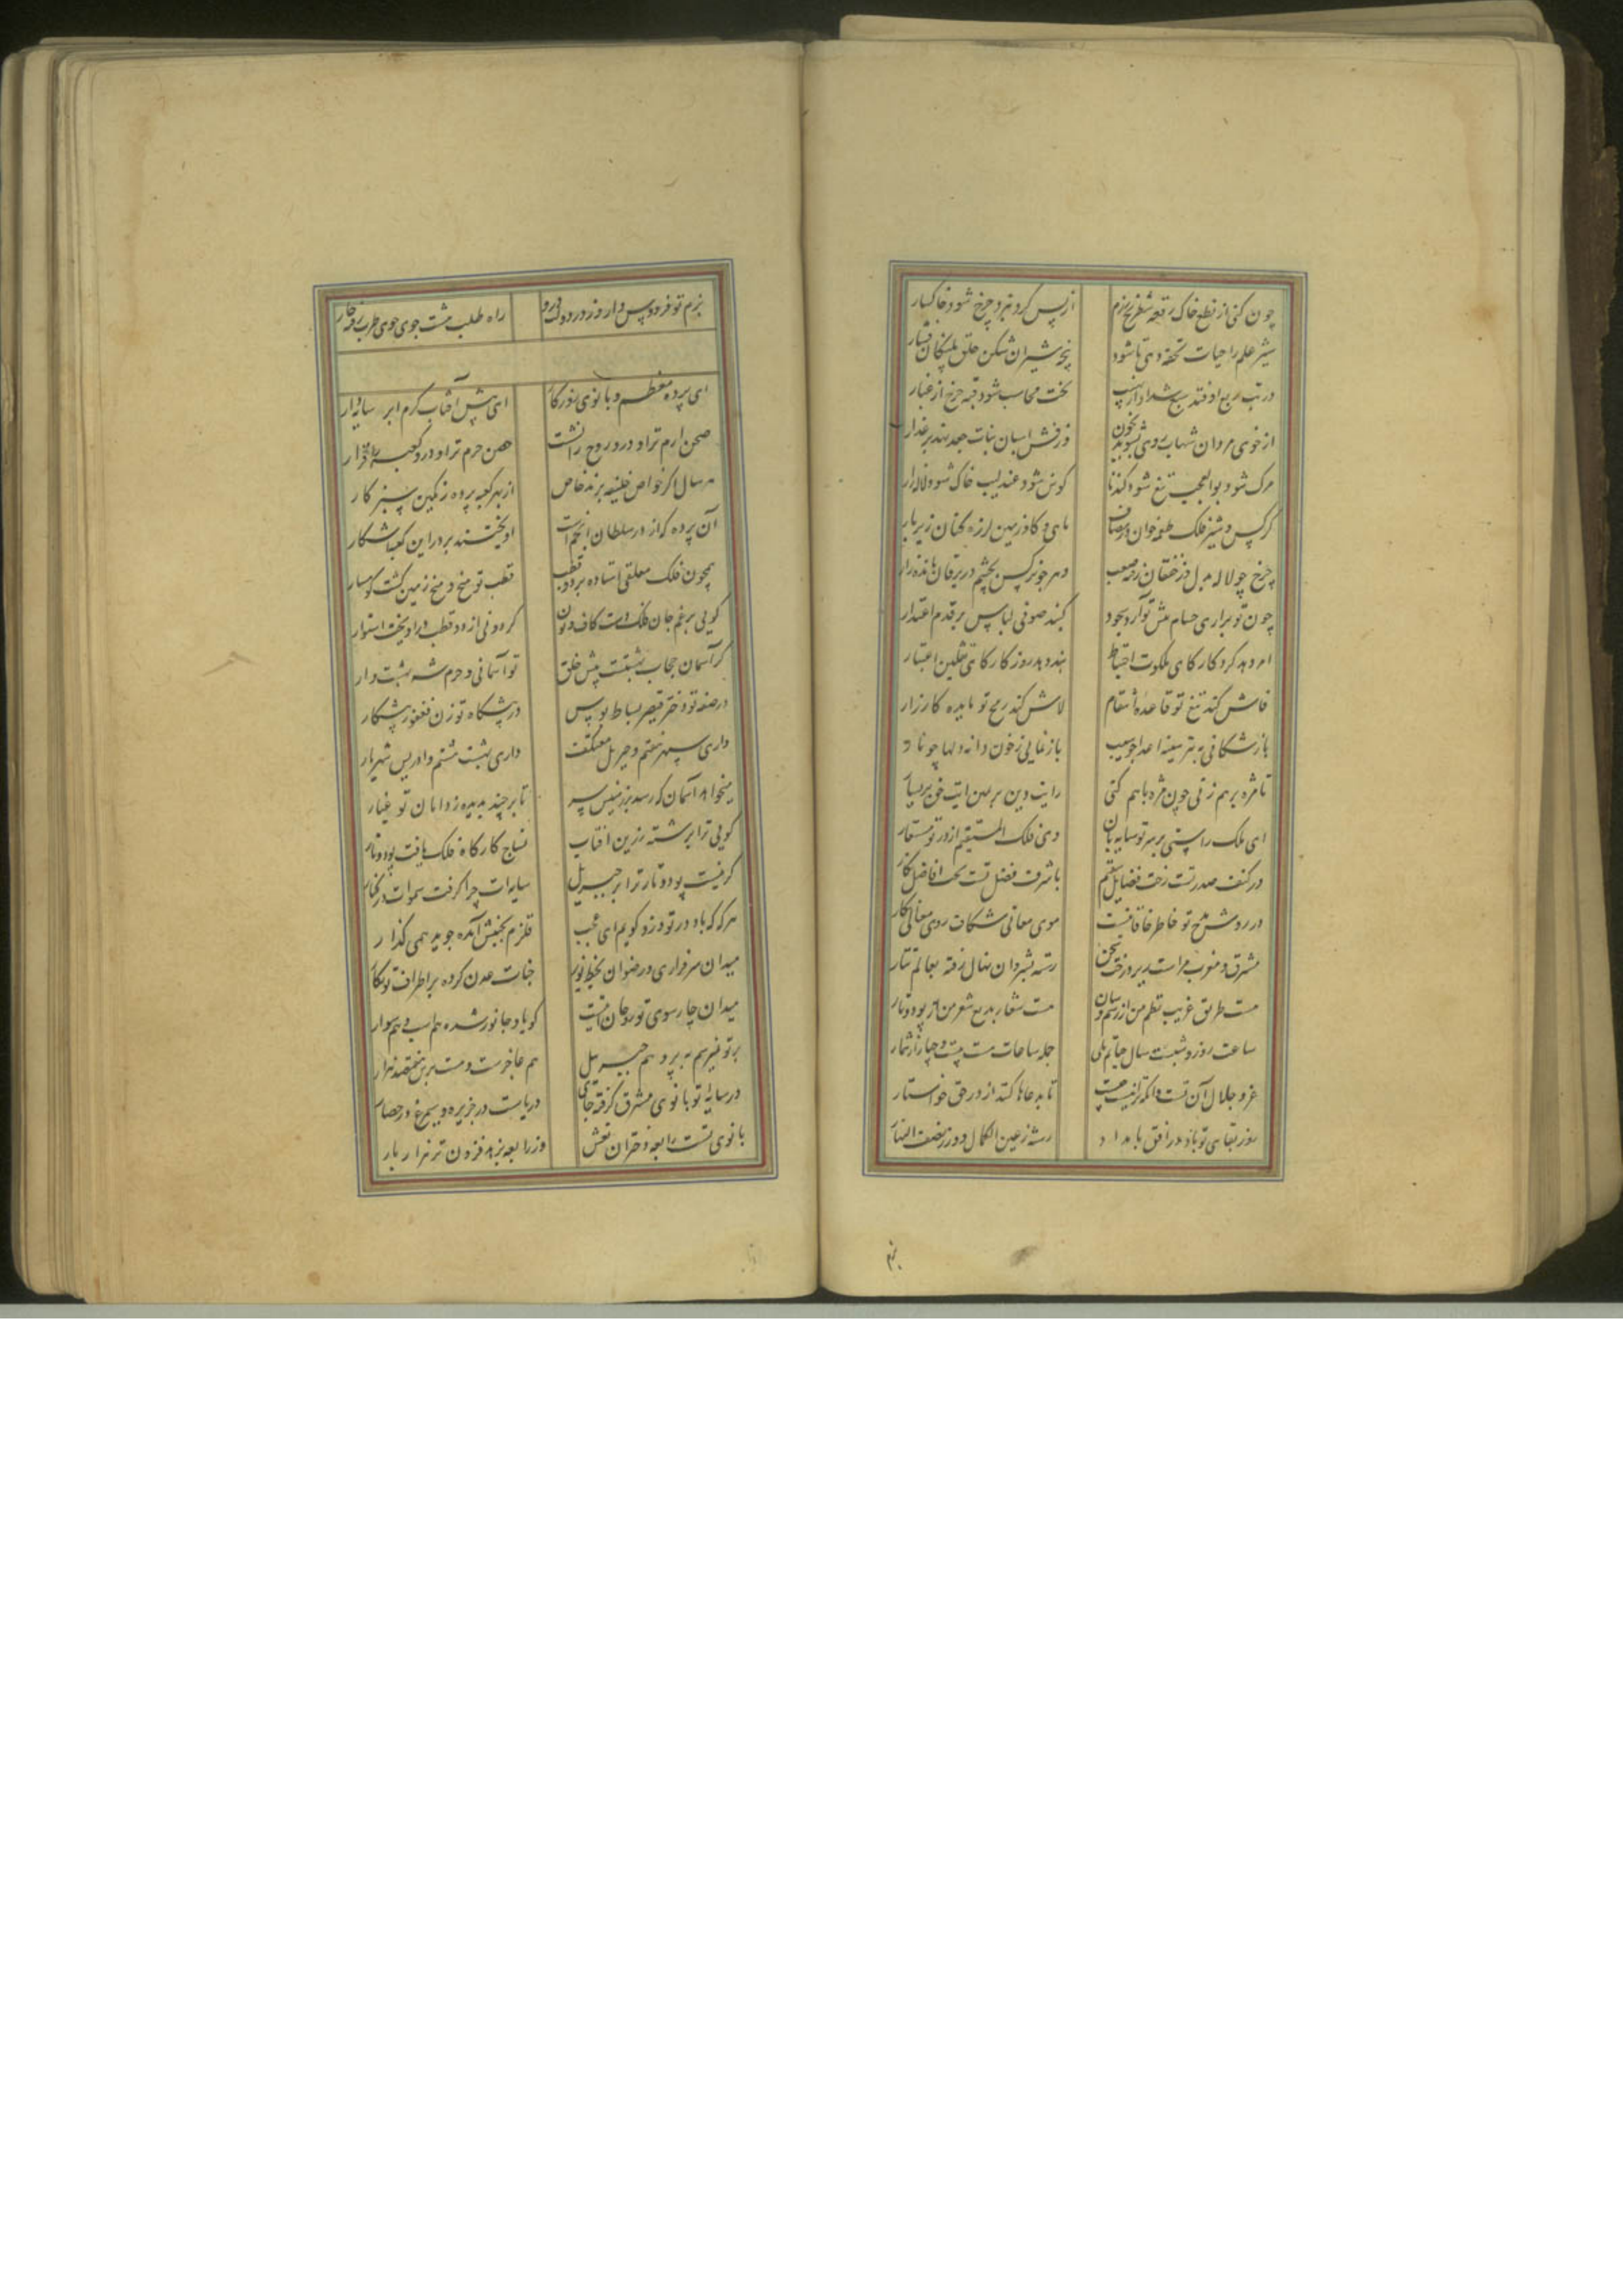 چون کنی از نطع خاک رقعه شطرنج رزم از پس گرد نبرد چرخ شود خاکسار
شیر علم را حیات تحفه دهی تا شود پنجه شیران شکن حلق پلنگان فشار
در تب ربع اوفتد سبع شداد از نهیب تخت محاسب شود قبه چرخ از غبار
از خوی مردان شهاب روی بشوید بخون وز نفش اسبان نبات جعد نهد بر عذار
مرک شود بوالعجب تیغ شود کندنا کوس شود عندلیب خاک شود لاله زار
کرکس و شیر فلک طعمه خوران در مصاف ماهی و کاو زمین لرزه کنان زیر بار
چرخ چو لاله بدل در خفقان رفته صعب دهر چو نرکس بچشم در یرقان مانده زار
چون تو برآری حسام پیش تو آرد سجود کنبد صوفی لباس بر قدم اعتذار
امر دهد کردکار کای ملکوت احتیاط بند دهد روزکار کای ثقلین اعتبار
فاش کند تیغ تو قاعده انتقام لاش کند رمح تو مایده کارزار
بازشکافی به تیر سینه اعدا چو سیب بازنمایی ز خون دانه دلها چو نار
تا مژه برهم زنی چون مژه باهم کنی رایت دین بر یمین آیت حق بر یسار
ای ملک راستین بر سر تو سایه بان وی فلک المستقیم از در تو مستعار
در کنف صدر تست رخت فضایل مقیم با شرف فضل تست بخت افاضل بکار
در روش مدح تو خاطر خاقانیست موی معانی شکاف روی معالی نکار
مشرق و مغرب مراست زیر درخت سخن رسته شروان نهال رفته بعالم ثمار
هست طریق غریب نظم من از رسم و سان هست شعار بدیع شعر من از پود و تار
ساعت روز و شبست سال حیاتم بلی جمله ساعات هست بیست و چهار از شمار
عز و جلال آن تست وانکه ترا نیست چیست تا بدعاها کنند از در حق خواستار
روز بقای تو باد در افق بامداد رسته ز عین الکمال دور ز نصف النهار
بزم
بزم تو فردوس وار وز در دولت درو راه طلب هشت جوی جوی طرب برقرار
ای پرده معظم و بانوی روزکار ای پیش آفتاب کرم ابر سایه دار
صحن ارم ترا و درو روح را نشست حصن حرم ترا و درو کعبه را قرار
هر سال اکر خواص خلیفه برند خاص از بهر کعبه پرده رنکین سبز کار
آن پرده کز در سلطان انجم است آویختند بر در این کعبه آشکار
همچون فلک معلقی استاده بر دو قطب قطب تو میخ و میخ زمین کشت کوهسار
کویی برغم جان فلک دست کاف و نون کردونی از دو قطب درآویخت استوار
کر آسمان حجاب بهشتست پیش خلق تو آسمانی و حرم شه بهشت وار
در صفه تو دختر قیصر بساط بوس در پیشکاه تو زن فغفور پیشکار
داری سپهر هفتم و جبریل معتکف داری بهشت هشتم و ادریس شهریار
میخواهد آسمان که رسد بر زمینش سر تا برچیند بدیده ز دامان تو غبار
کویی ترا برشته زرین آفتاب نساج کارکاه فلک بافت پود و تار
کر نیست پود و تار ترا پر جبرییل سایه ات چرا کرفت سموات در کنار
هر که که باد در تو وزد کویم ای عجب قلزم بجنبش آمده جویدهمی کذار
میدان سرفرازی و رضوان بخط نور جنات عدن کرده بر اطراف تو نکار
میدان چارسوی تو روحانیست کو یاد جانور شده هم اسب و هم سوار
بر تو نپرد بپر هم جبرییل هم عاجزست و هست پرش هفتصد هزار
در سایه تو بانوی مشرق کرفته جای دریاست در جزیره و سیمرغ در حصار
بانوی تست رابعه دختران نعش وز رابعه بزهد فزون تر هزار بار